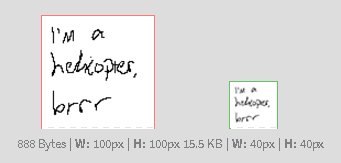 I'm a
helicopter,
brrr
I'm a
helicopter,
brrr
888 Bytes | W: 100px | H: 100px 15.5 KB | W: 40px | H: 40px